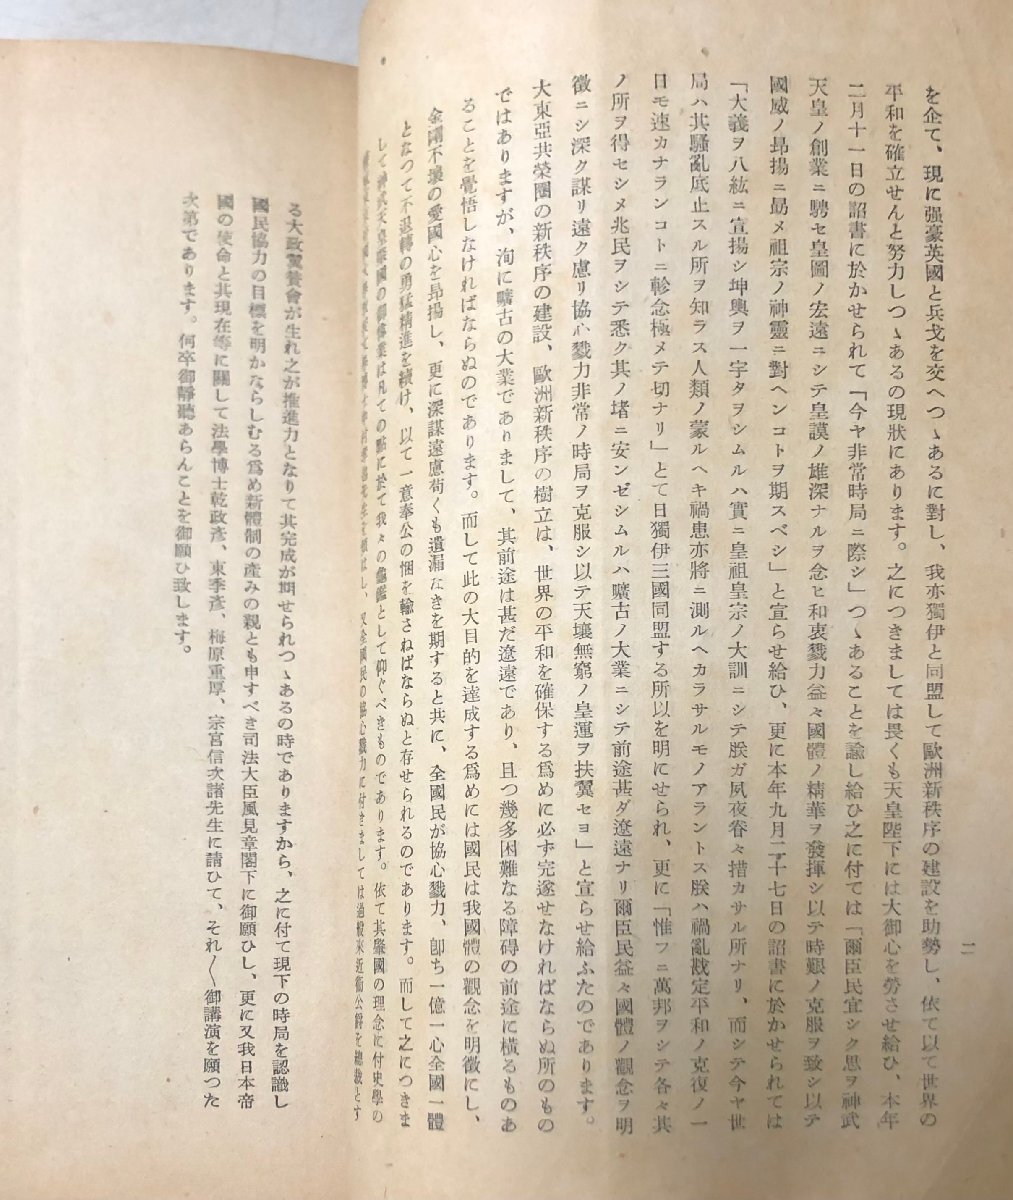 二
を企て、現に强豪英國と兵戈を交へつゝあるに對し、我亦獨伊と同盟して歐洲新秩序の建設を助勢し、依て以て世界の
平和を確立せんと努力しつゝあるの現狀にあります。之につきましては畏くも天皇陛下には大御心を勞させ給ひ、本年
二月十一日の詔書に於かせられて「今ヤ非常時局ニ際シ」つゝあることを諭し給ひ之に付ては「爾臣民宜シク思ヲ神武
天皇ノ創業ニ騁セ皇圖ノ宏遠ニシテ皇謨ノ雄深ナルヲ念ヒ和衷戮力益々國體ノ精華ヲ發揮シ以テ時艱ノ克服ヲ致シ以テ
國威ノ昻揚ニ勗メ祖宗ノ神靈ニ對ヘンコトヲ期スベシ」と宣らせ給ひ、更に本年九月二十七日の詔書に於かせられては
「大義ヲ八紘ニ宣揚シ坤輿ヲ一宇タラシムルハ實ニ皇祖皇宗ノ大訓ニシテ朕ガ夙夜眷々措カサル所ナリ、而シテ今ヤ世
局ハ其騷亂底止スル所ヲ知ラス人類ノ蒙ルヘキ禍患亦將ニ測ルヘカラサルモノアラントス朕ハ禍亂戡定平和ノ克復ノ一
日モ速カナランコトニ軫念極メテ切ナリ」とて日獨伊三國同盟する所以を明にせられ、更に「惟フニ萬邦ヲシテ各々其
ノ所ヲ得セシメ兆民ヲシテ悉ク其ノ堵ニ安ンゼシムルハ曠古ノ大業ニシテ前途甚ダ遼遠ナリ爾臣民益々國體ノ觀念ヲ明
徵ニシ深ク謀リ遠ク慮リ協心戮力非常ノ時局ヲ克服シ以テ天壤無窮ノ皇運ヲ扶翼セヨ」と宣らせ給ふたのであります。
大東亞共榮圈の新秩序の建設、歐洲新秩序の樹立は、世界の平和を確保する爲めに必ず完遂せなければならぬ所のもの
ではありますが、洵に曠古の大業でありまして、其前途は甚だ遼遠であり、且つ幾多困難なる障碍の前途に橫るものあ
ることを覺悟しなければならぬのであります。而して此の大目的を達成する爲めには國民は我國體の觀念を明徵にし、
金剛不壞の愛國心を昻揚し、更に深謀遠慮苟くも遺漏なきを期すると共に、全國民が協心戮力、卽ち一億一心全國一體
となつて不退轉の勇猛精進を續け、以て一意奉公の悃を輸さねばならぬと存せられるのであります。而して之につきま
して神武天皇肇國の御偉業は凡ての點に於て我々の龜鑑として仰ぐべきものであります。依て其肇國の理念に付史學の
を煩はし、又全國民の協心戮力に付きましては過般來近衞公爵を總裁とす
る大政翼賛會が生れ之が推進力となりて其完成が期せられつゝあるの時でありますから、之に付て現下の時局を認識し
國民協力の目標を明かならしむる爲め新體制の產みの親とも申すべき司法大臣風見章閣下に御願ひし、更に又我日本帝
國の使命と其現在等に關して法學博士乾政彥、東季彥、梅原重厚、宗宮信次諸先生に請ひて、それ〲御講演を願つた
次第であります。何卒御靜聽あらんことを御願ひ致します。